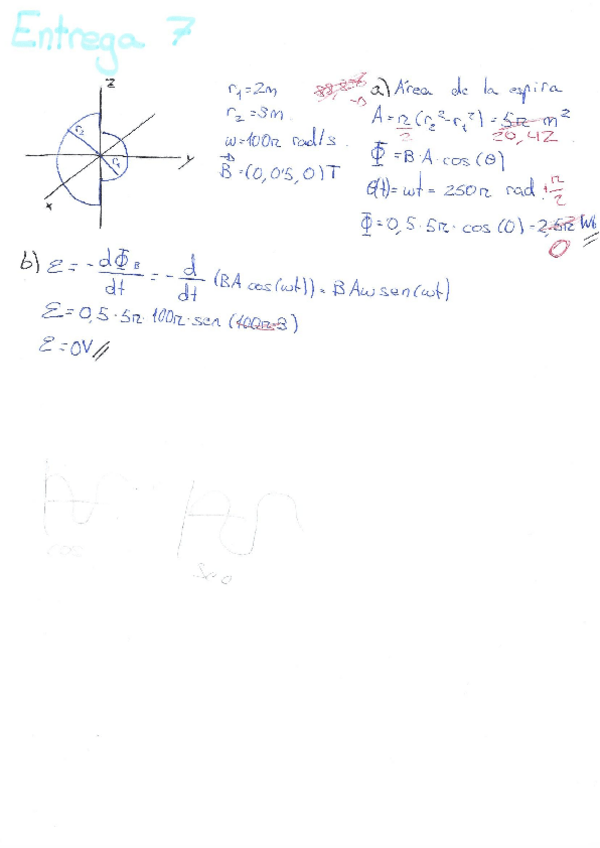 Entrega 7
z
r₂
r₁
y
x
r₁=2m
r₂=3m.
w=100π rad/s.
B⃗=(0,0'5,0)T
a) Área de la espira
A=π/2(r₂²-r₁²)=5π m²
20,42
Φ=B·A·cos(θ)
θ(t)=wt=250π rad.+π/2
Φ=0,5·5π·cos(0)=2,5π Wb
0
b) ε=-dΦ_B/dt=-d/dt(BAcos(wt))=BAwsen(wt)
ε=0,5·5π·100π·sen(100π·3)
ε=0V
cos
Seno